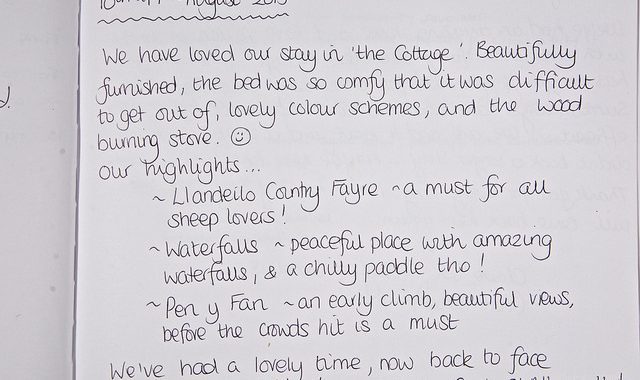 August 2015
We have loved our stay in 'the Cottage'. Beautifully
furnished, the bed was so comfy that it was difficult
to get out of, lovely colour schemes, and the wood
burning stove. ☺
our highlights...
~ Llandeilo Country Fayre ~ a must for all
sheep lovers!
~ Waterfalls ~ peaceful place with amazing
waterfalls, & a chilly paddle tho!
~ Pen y Fan ~ an early climb, beautiful views,
before the crowds hit is a must
We've had a lovely time, now back to face